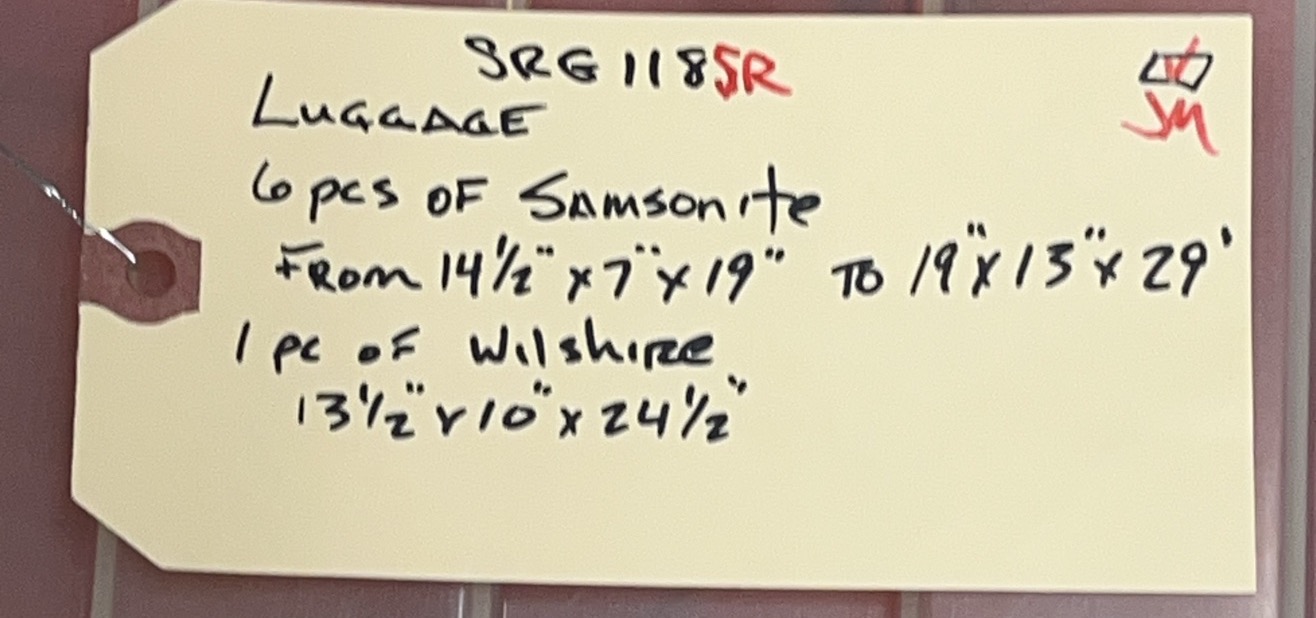 SRG118SR
LUGGAGE
6 pcs OF Samsonite
From 14 1/2" x 7" x 19" TO 19" x 13" x 29'
1 pc of Wilshire
13 1/2" x 10" x 24 1/2"